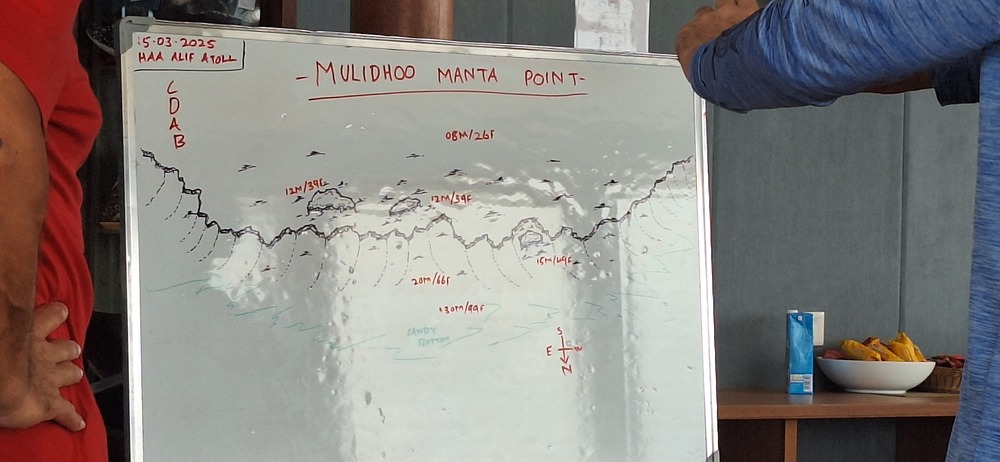 5.03.2025
HAA ALIF ATOLL
- MULIDHOO MANTA POINT-
C
D
A
B
08M/26F
12M/39F
12M/39F
15M/49F
20M/66F
30M/99F
SANDY
BOTTOM
S
E
W
N